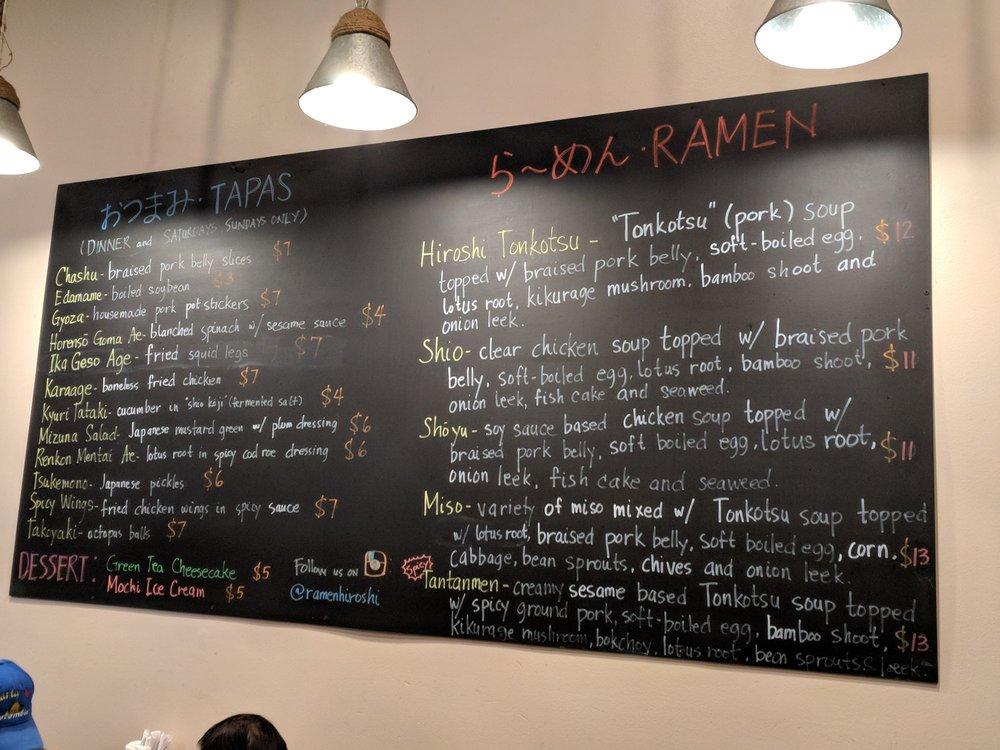 おつまみ・TAPAS
(DINNER and SATURDAYS, SUNDAYS ONLY)
Chashu - braised pork belly slices $7
Edamame - boiled soybean $3
Gyoza - housemade pork potstickers $7
Horensō Goma Ae - blanched spinach w/ sesame sauce $4
Ika Geso Age - fried squid legs $7
Karaage - boneless fried chicken $7
Kyuri Tataki - cucumber in "shio koji" (fermented salt) $4
Mizuna Salad - Japanese mustard green w/ plum dressing $6
Renkon Mentai Ae - lotus root in spicy cod roe dressing $6
Tsukemono - Japanese pickles $6
Spicy Wings - fried chicken wings in spicy sauce $7
Takoyaki - octopus balls $7
DESSERT: Green Tea Cheesecake $5
Mochi Ice Cream $5
Follow us on
@ramenhiroshi
らーめん・RAMEN
Hiroshi Tonkotsu - "Tonkotsu" (pork) soup
topped w/ braised pork belly, soft-boiled egg, $12
lotus root, kikurage mushroom, bamboo shoot and
onion leek.
Shio - clear chicken soup topped w/ braised pork
belly, soft-boiled egg, lotus root, bamboo shoot, $11
onion leek, fish cake and seaweed.
Shoyu - soy sauce based chicken soup topped w/
braised pork belly, soft boiled egg, lotus root, $11
onion leek, fish cake and seaweed.
Miso - variety of miso mixed w/ Tonkotsu soup topped
w/ lotus root, braised pork belly, soft boiled egg, corn, $13
cabbage, bean sprouts, chives and onion leek.
Spicy Tantanmen - creamy sesame based Tonkotsu soup topped
w/ spicy ground pork, soft-boiled egg, bamboo shoot, $13
kikurage mushroom, bokchoy, lotus root, bean sprouts & leek.